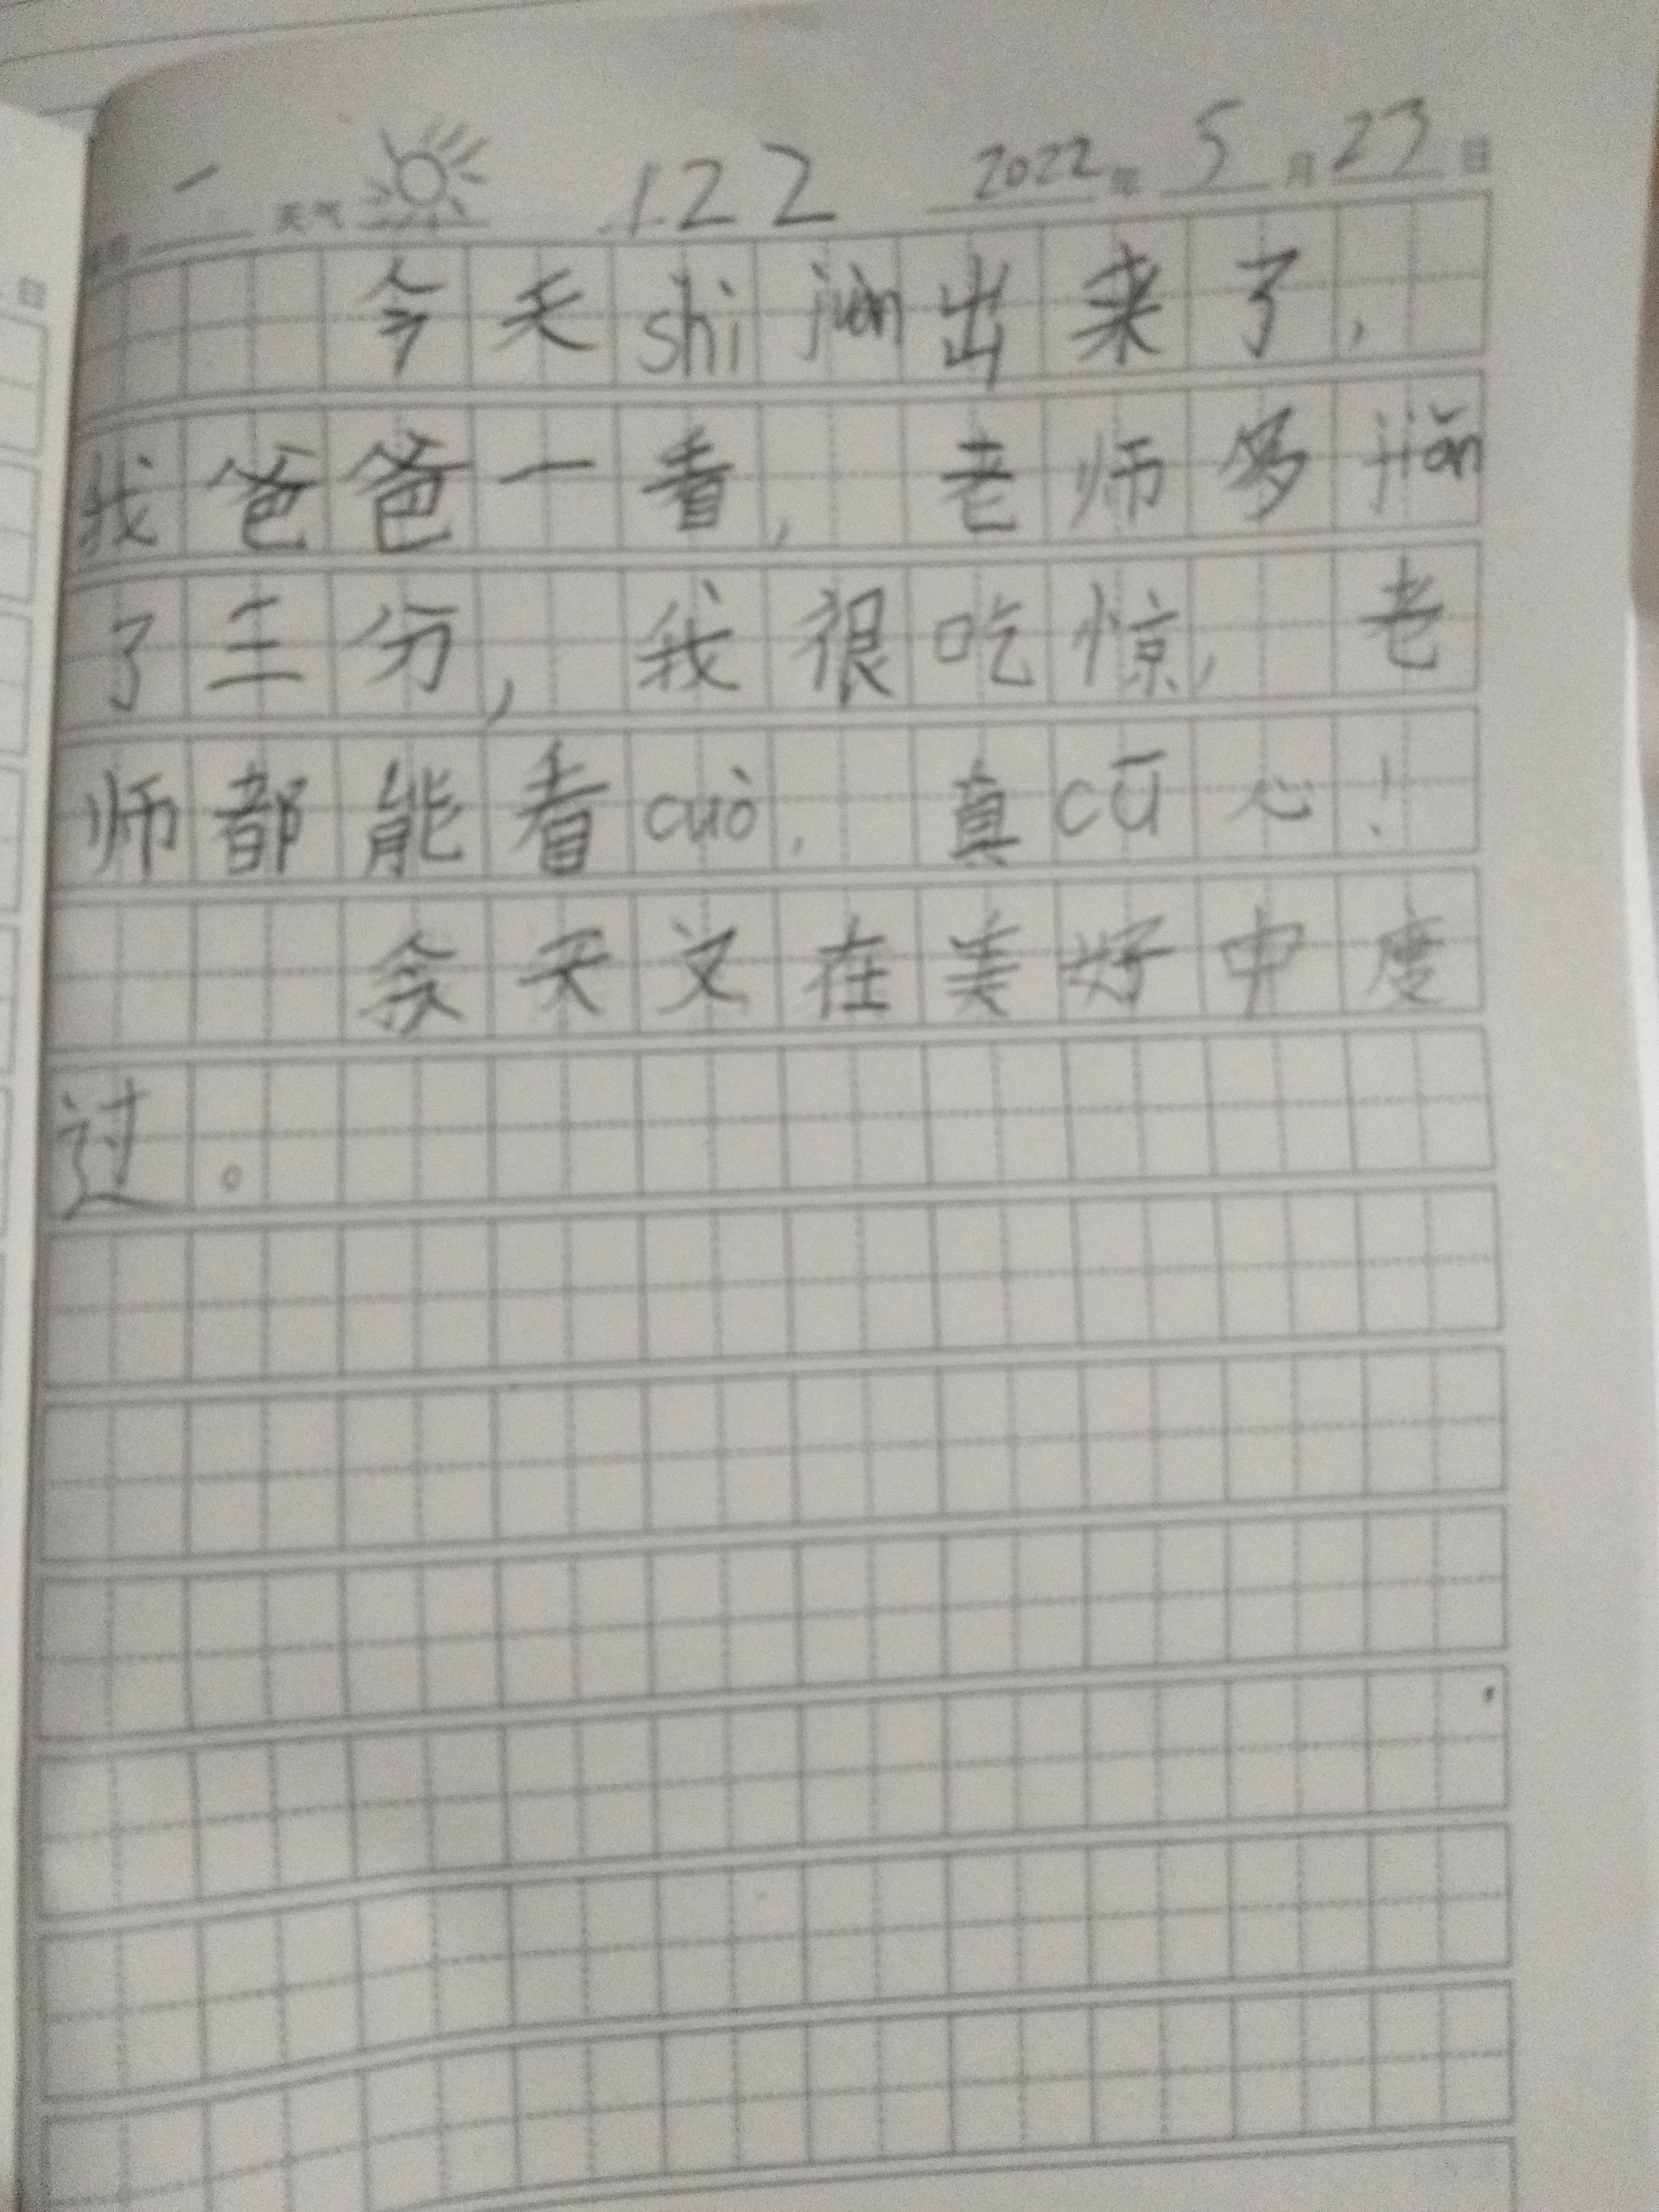 一 天气 122 2022年 5月 23日
今天shì juàn出来了,
我爸爸一看, 老师多jiǎn
了三分, 我很吃惊, 老
师都能看cuò, 真cū心!
今天又在美好中度
过。